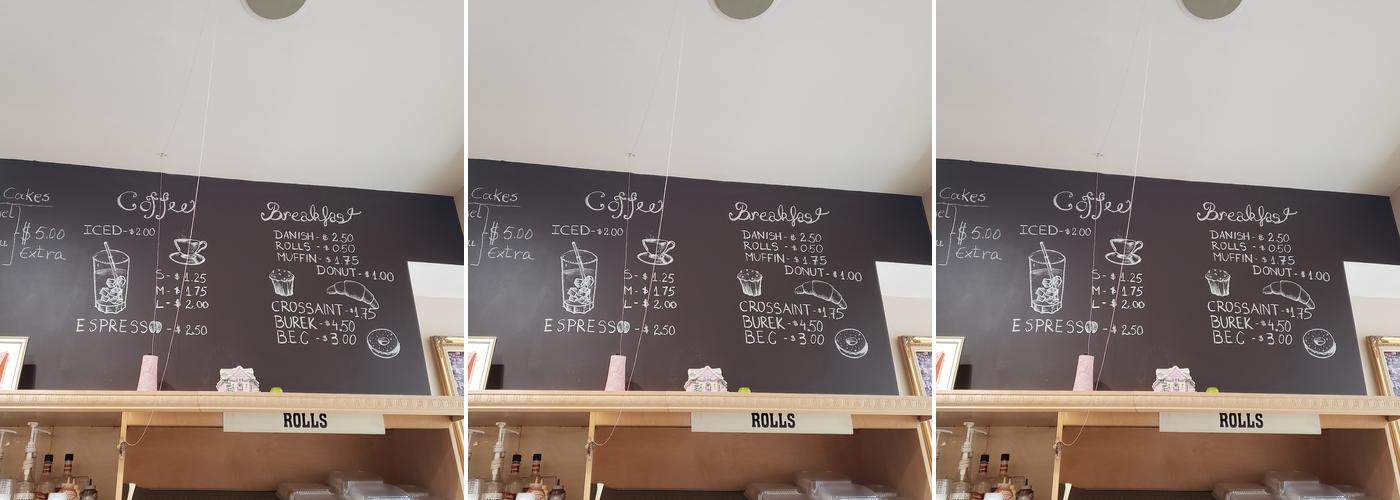 Cakes
$5.00
Extra
Coffee
ICED-$2.00
S-$1.25
M-$1.75
L-$2.00
ESPRESSO-$2.50
Breakfast
DANISH-$2.50
ROLLS-$0.50
MUFFIN-$1.75
DONUT-$1.00
CROSSAINT-$1.75
BUREK-$4.50
BEC-$3.00
ROLLS
Cakes
$5.00
Extra
Coffee
ICED-$2.00
S-$1.25
M-$1.75
L-$2.00
ESPRESSO-$2.50
Breakfast
DANISH-$2.50
ROLLS-$0.50
MUFFIN-$1.75
DONUT-$1.00
CROSSAINT-$1.75
BUREK-$4.50
BEC-$3.00
ROLLS
Cakes
$5.00
Extra
Coffee
ICED-$2.00
S-$1.25
M-$1.75
L-$2.00
ESPRESSO-$2.50
Breakfast
DANISH-$2.50
ROLLS-$0.50
MUFFIN-$1.75
DONUT-$1.00
CROSSAINT-$1.75
BUREK-$4.50
BEC-$3.00
ROLLS